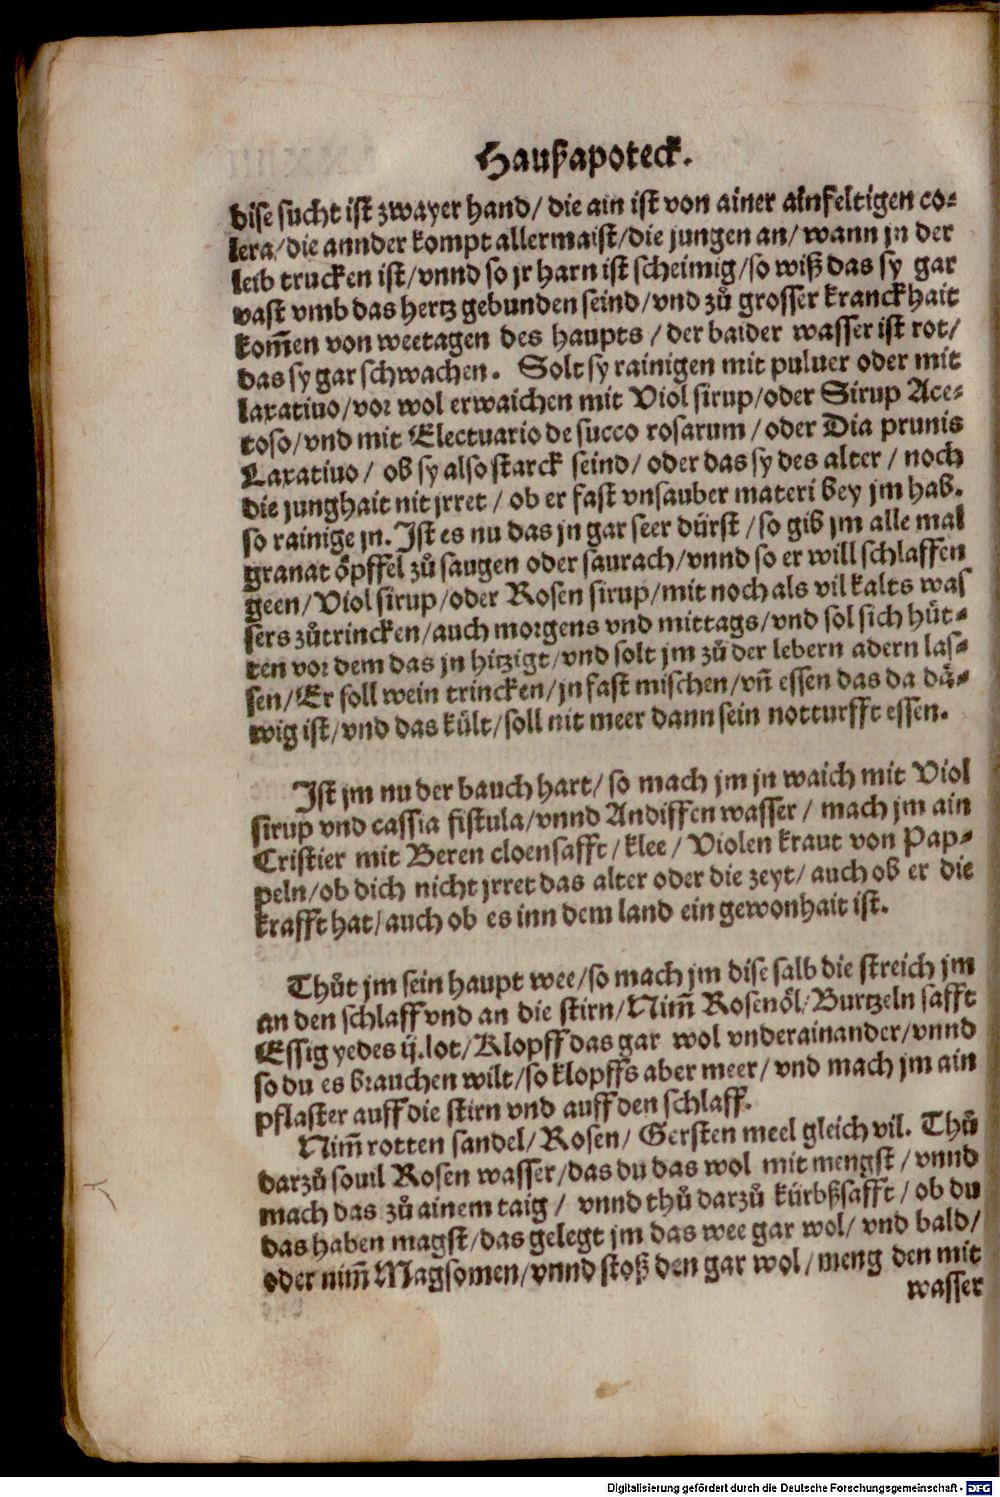 Haußapoteck.
dise sucht ist zwayer hand/ die ain ist von ainer ainfeltigen co⸗
lera/die annder kompt allermaist/die jungen an/ wann jn der
leib trucken ist/vnnd so jr harn ist scheimig/so wiß das sy gar
vast vmb das hertz gebunden seind/vnd zů grosser kranckhait
kom̃en von weetagen des haupts / der baider wasser ist rot/
das sy gar schwachen. Solt sy rainigen mit puluer oder mit
laxatiuo/vor wol erwaichen mit Viol sirup/oder Sirup Ace⸗
toso/vnd mit Electuario de succo rosarum / oder Dia prunis
Laxatiuo/ ob sy also starck seind/ oder das sy des alter / noch
die junghait nit jrret / ob er fast vnsauber materi bey jm hab.
so rainige jn. Ist es nu das jn gar seer dürst / so gib jm alle mal
granat öpffel zů saugen oder saurach/vnnd so er will schlaffen
geen/Viol sirup/oder Rosen sirup/mit noch als vil kalts was
sers zůtrincken/auch morgens vnd mittags/vnd sol sich hůt⸗
ten vor dem das jn hitzigt/vnd solt jm zů der lebern adern las⸗
sen/Er soll wein trincken/jn fast mischen/vñ essen das da dä⸗
wig ist/vnd das kült/soll nit meer dann sein notturfft essen.
Ist jm nu der bauch hart/ so mach jm jn waich mit Viol
sirup vnd cassia fistula/vnnd Andiffen wasser / mach jm ain
Cristier mit Beren cloensafft/klee/ Violen kraut von Pap⸗
peln/ob dich nicht jrret das alter oder die zeyt/ auch ob er die
krafft hat/auch ob es inn dem land ein gewonhait ist.
Thůt jm sein haupt wee/so mach jm dise salb die streich jm
an den schlaff vnd an die stirn/Nim̃ Rosenöl/Burtzeln safft
Essig yedes ij.lot/Klopff das gar wol vnderainander/vnnd
so du es brauchen wilt/so klopffs aber meer/ vnd mach jm ain
pflaster auff die stirn vnd auff den schlaff.
Nim̃ rotten sandel/Rosen/ Gersten meel gleich vil. Thů
darzů souil Rosen wasser/das du das wol mit mengst / vnnd
mach das zů ainem taig / vnnd thů darzů kürbßsafft / ob du
das haben magst/das gelegt jm das wee gar wol/ vnd bald/
oder nim̃ Magsomen/vnnd stoß den gar wol/meng den mit
wasser
Digitalisierung gefördert durch die Deutsche Forschungsgemeinschaft - DFG